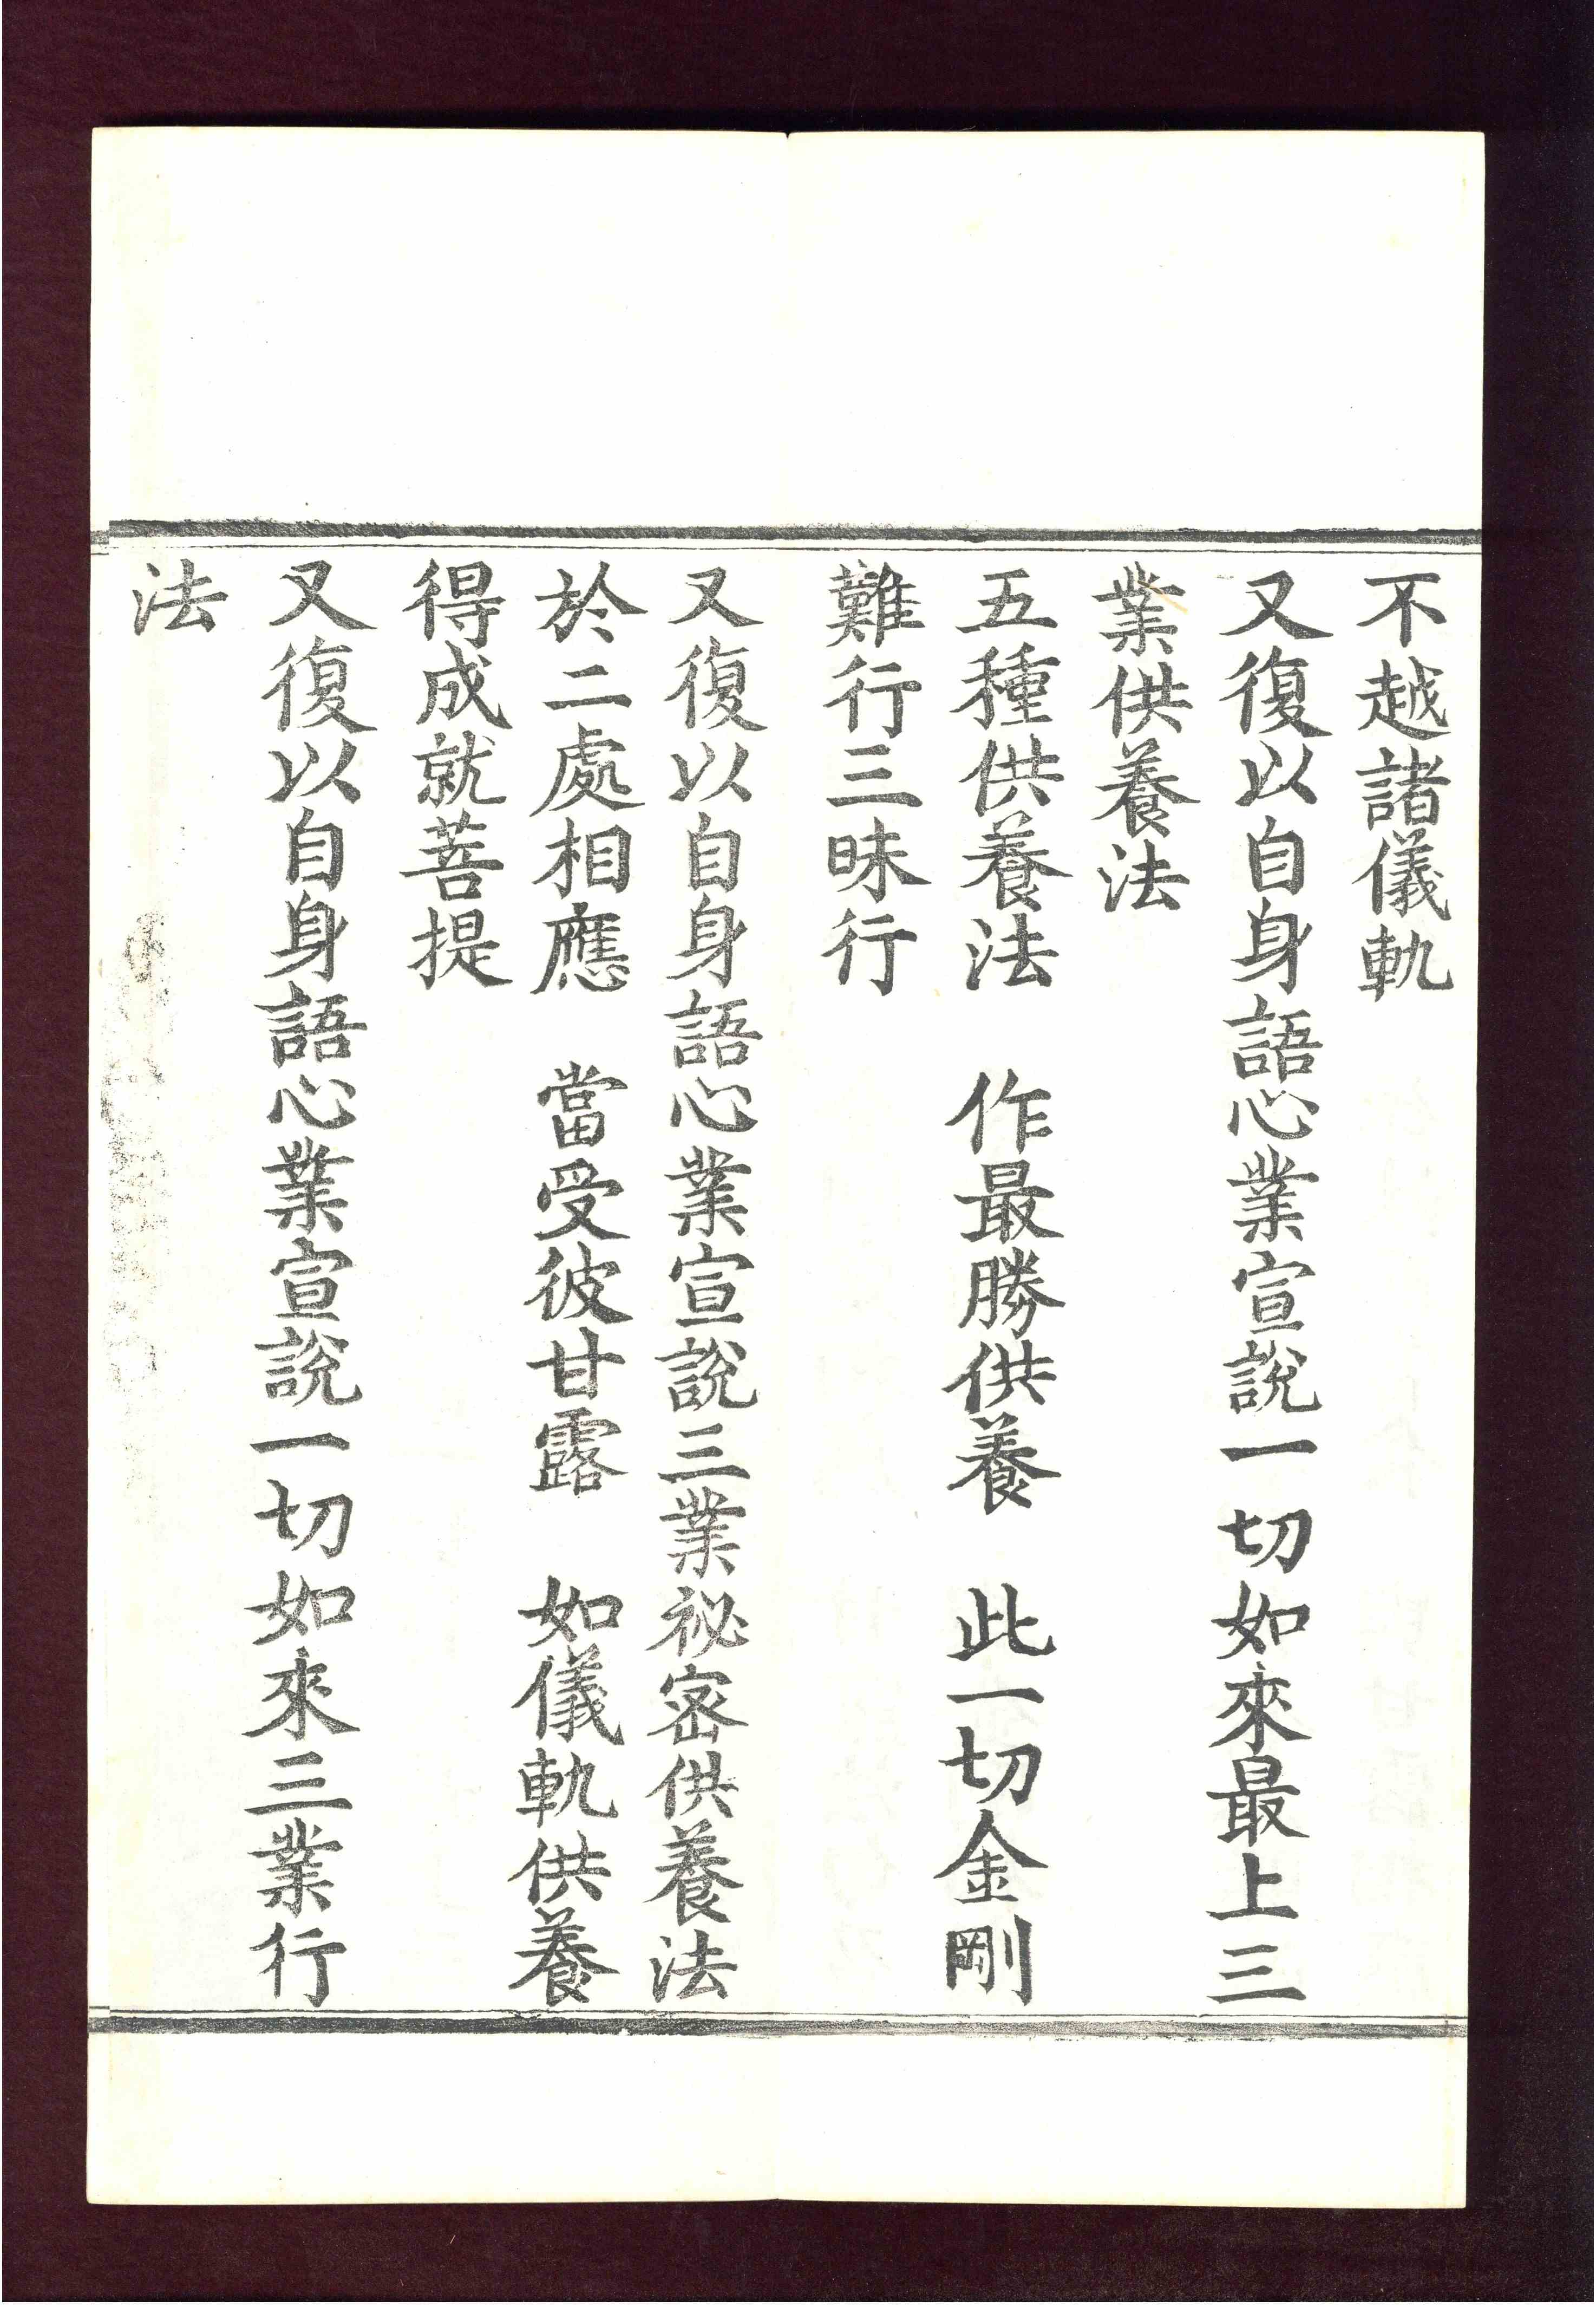 不越諸儀軌
又復以自身語心業宣說一切如來最上三
業供養法
五種供養法　作最勝供養　此一切金剛
難行三昧行
又復以自身語心業宣說三業祕密供養法
於二處相應　當受彼甘露　如儀軌供養
得成就菩提
又復以自身語心業宣說一切如來三業行
法